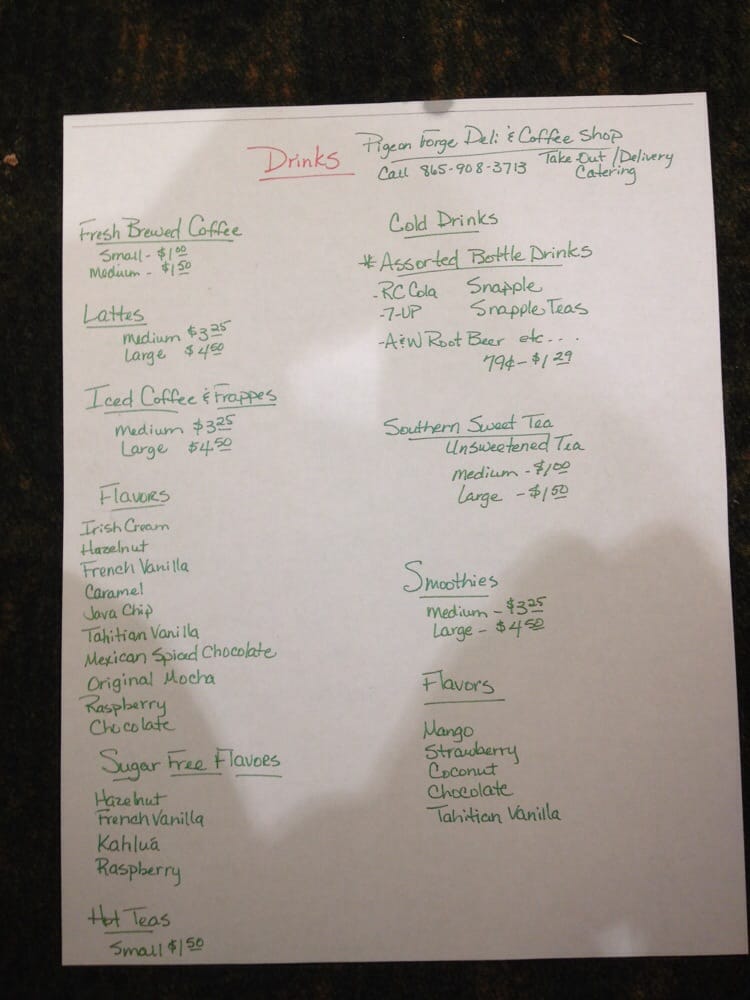 Drinks
Pigeon Forge Deli & Coffee Shop
Call 865-908-3713 Take Out/Delivery
Catering
Fresh Brewed Coffee
Small - $1.00
Medium - $1.50
Lattes
Medium $3.25
Large $4.50
Iced Coffee & Frappes
Medium $3.25
Large $4.50
Flavors
Irish Cream
Hazelnut
French Vanilla
Caramel
Java Chip
Tahitian Vanilla
Mexican Spiced Chocolate
Original Mocha
Raspberry
Chocolate
Sugar Free Flavors
Hazelnut
French Vanilla
Kahluá
Raspberry
Hot Teas
Small $1.50
Cold Drinks
* Assorted Bottle Drinks
- RC Cola Snapple
- 7-UP Snapple Teas
- A&W Root Beer etc...
79¢ - $1.29
Southern Sweet Tea
Unsweetened Tea
Medium - $1.00
Large - $1.50
Smoothies
Medium - $3.25
Large - $4.50
Flavors
Mango
Strawberry
Coconut
Chocolate
Tahitian Vanilla